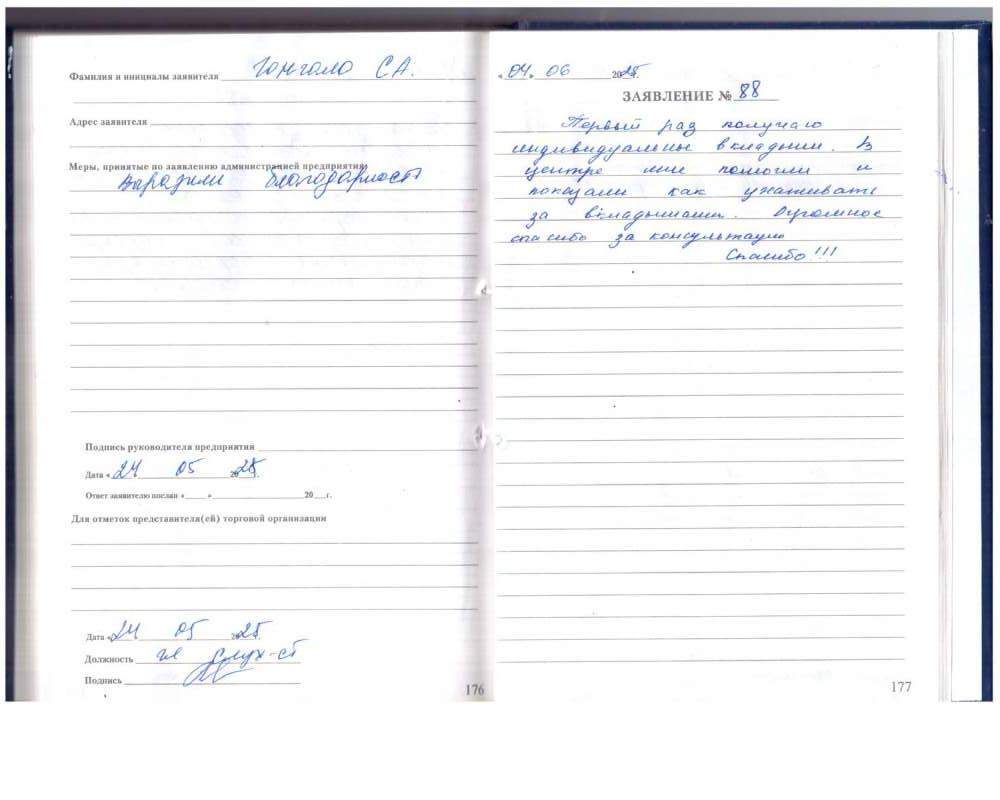 Фамилия и инициалы заявителя Гонгало С.А.
Адрес заявителя
Меры, принятые по заявлению администрацией предприятия:
Выразили благодарность
Подпись руководителя предприятия
Дата «24 05 2025г.
Ответ заявителю послан « » 20 г.
Для отметок представителя(ей) торговой организации
Дата «24 05 2025
Должность гл слух-ст
Подпись
176
«04» 06 2025.
ЗАЯВЛЕНИЕ № 88
Первый раз получаю
индивидуальные вкладыши. В
центре мне помогли и
показали как ухаживать
за вкладышами. Огромное
спасибо за консультацию
Спасибо!!!
177